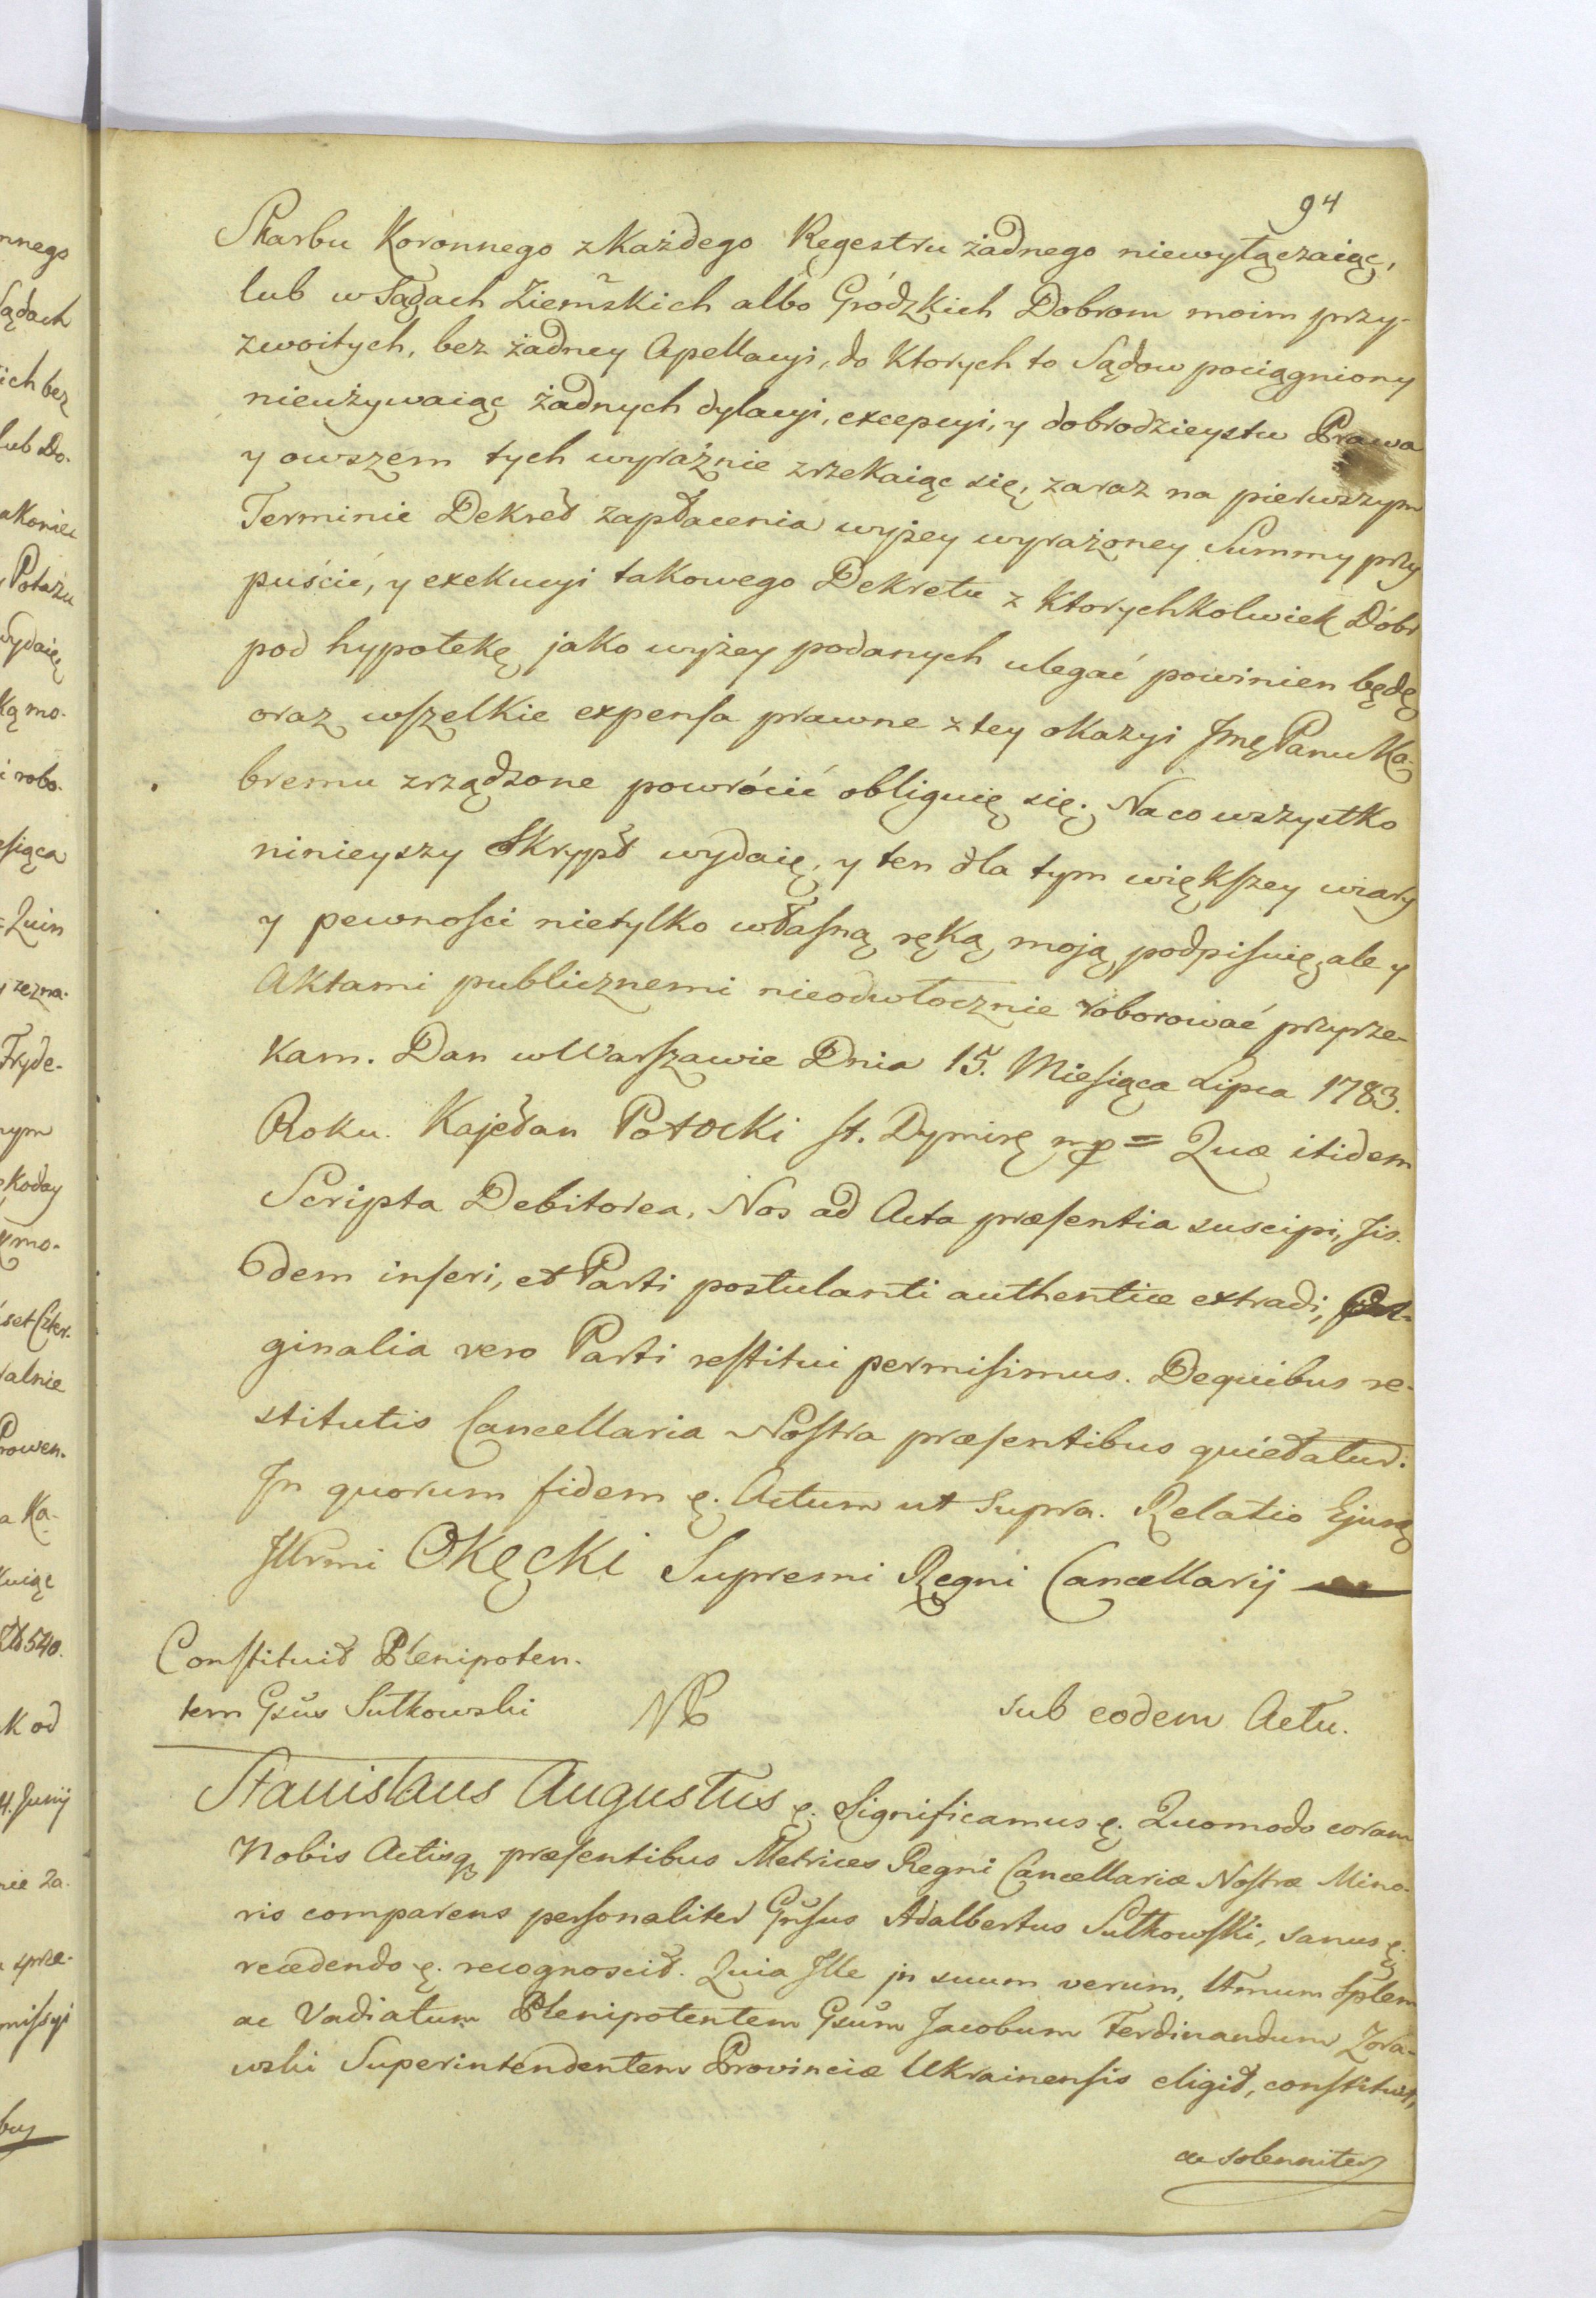 94
Skarbu Koronnego z Każdego Regestru żadnego niewyłączaiąc,
lub w Sądach Ziemskich albo Gródzkich Dobrom moim przy-
zwoitych, bez żadney Apellacyi, do Ktorych to Sądow pociągniony
nieużywaiąc żadnych dylacyi, excepcyi, y dobrodzieystw Prawa
y owszem tych wyraźnie zrzekaiąc się, zaraz na pierwszym
Terminie Dekret zapłacenia wyżey wyrażoney Summy przy
puścić, y exekucyi takowego Dekretu z Ktorychkolwiek Dóbr
pod hypotekę jako wyżey podanych ulegać powinien będę
oraz wszelkie expensa prawne z tey okazyi Jmę Panu Ka-
bremu zrządzone powrócić obliguię się. Na co wszystko
ninieyszy Skrypt wydaię, y ten dla tym większey wiary
y pewności nietylko własną ręką moją podpisuię, ale y
Aktami publicznemi nieodwłocznie roborować przyrze-
kam. Dan w Warszawie Dnia 15. Miesiąca Lipca 1783.
Roku. Kajetan Potocki st. Dymirę mp = Quæ itidem
Scripta Debitorea, Nos ad Acta præsentia suscipi, Jis-
dem inseri, et Parti postulanti authentice extradi,
ginalia vero Parti restitui permisimus. De quibus re-
stitutis Cancellaria Nostra præsentibus quietatur.
Jn quorum fidem ę. Actum ut supra. Relatio Ejusdę
Jllrmi Okęcki Supremi Regni Cancellarij
Constituit Plenipoten-
tem Gsus Sutkowski
sub eodem Actu.
Stanislaus Augustus ę. Significamus ę. Quomodo coram
Nobis Actisq præsentibus Metrices Regni Cancellariæ Nostræ Mino-
ris comparens personaliter Gnsus Adalbertus Sutkowski, sanus ę.
recedendo ę. recognoscit. Quia Jlle in suum verum, lttmum Splem
ac Vadiatum Plenipotentem Gsum Jacobum Ferdinandum Zora-
wski Superintendentem Provinciæ Ukrainensis eligit, constituit,
ac solenniter